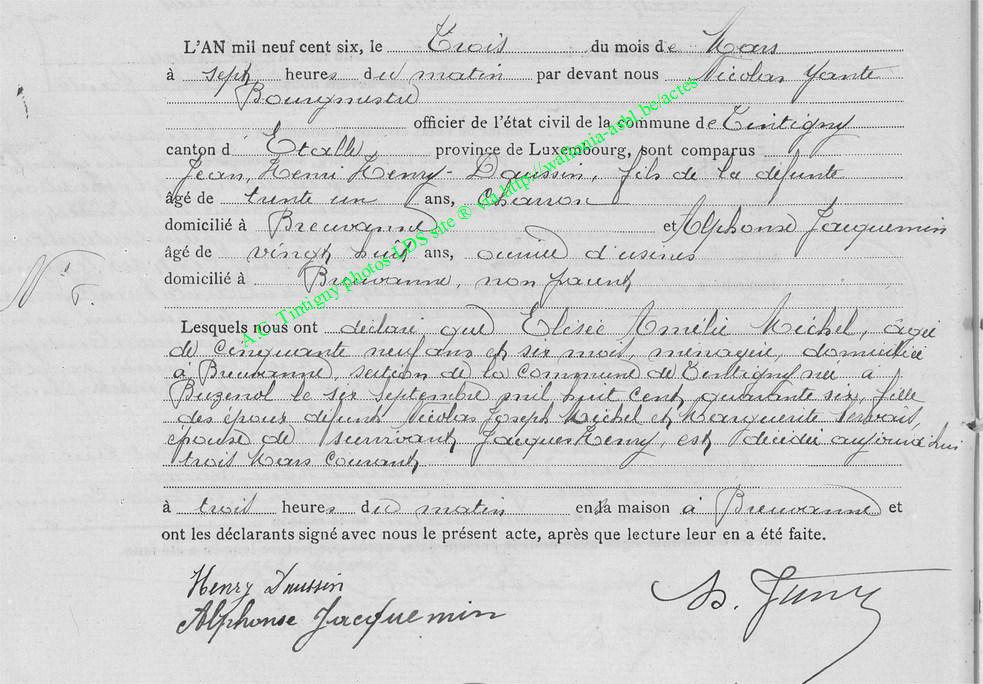 L'AN mil neuf cent six, le Trois du mois de Mars
à sept heures du matin par devant nous Nicolas
Bourgmestre
officier de l'état civil de la commune de Tintigny
canton d'Etalle, province de Luxembourg, sont comparus
Jean, Henri Henry-Daussin, fils de la défunte
âgé de trente un ans, Charron
domicilié à Breuvanne et Alphonse Jacquemin
âgé de vingt huit ans, ouvrier d'usines
domicilié à Breuvanne, non parent
Lesquels nous ont déclaré que Elisée Amélie Michel, âgée
de cinquante neuf ans et six mois, ménagère, domiciliée
à Breuvanne, section de la commune de Tintigny née à
Buzenol le six septembre mil huit cent quarante six, fille
des époux défunts Nicolas Joseph Michel et Marguerite Servais,
épouse de survivant Jacques Henry, est décédée aujourd'hui
trois Mars courant
à trois heures du matin en sa maison à Breuvanne et
ont les déclarants signé avec nous le présent acte, après que lecture leur en a été faite.
Henry Daussin
Alphonse Jacquemin
A.C. Tintigny photos LDS site ® via http://wallonia-asbl.be/actes